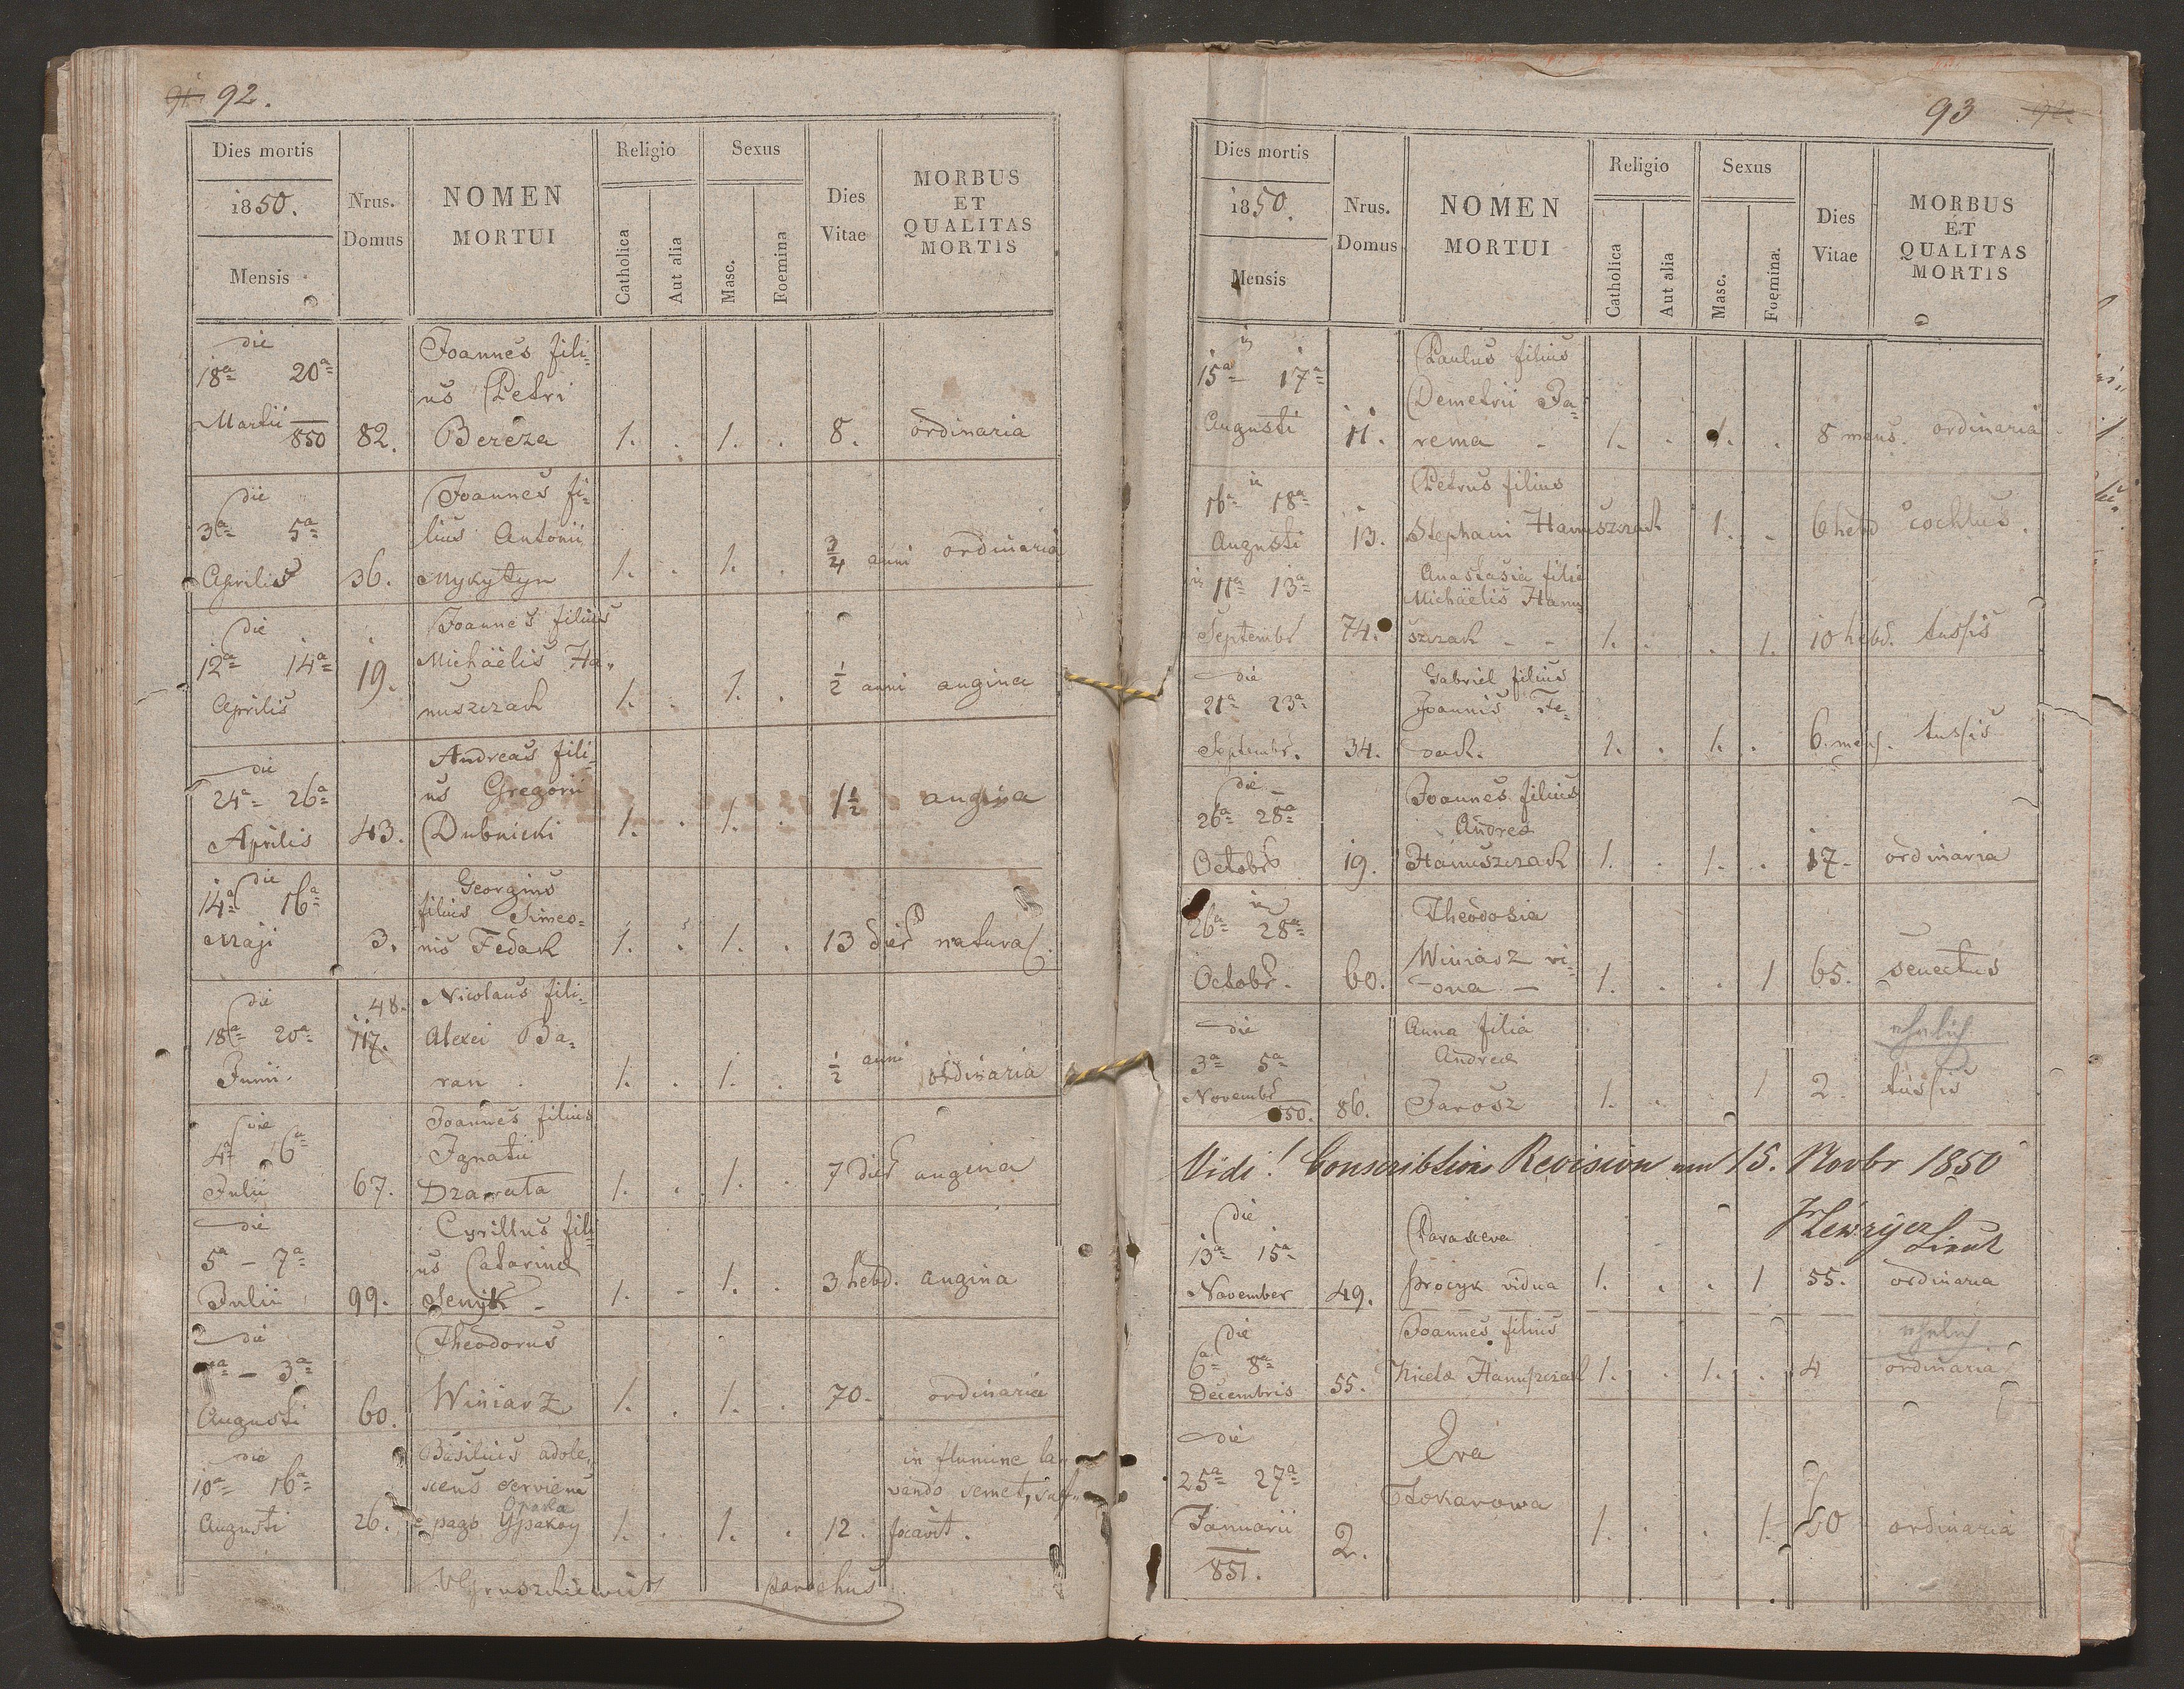 91. 92.
Dies mortis
1850.
Mensis
Nrus.
Domus
NOMEN
MORTUI
Religio
Catholica
Aut alia
Sexus
Masc.
Foemina
Dies
Vitae
MORBUS
ET
QUALITAS
MORTIS
die
18a 20a
Martii 850
82.
Joannes fili-
us Petri
Bereza
1. . 1. . 8. ordinaria
die
3a 5a
Aprilis
36.
Joannes fi-
lius Antonii
Mykytyn
1. . 1. . 3/4 anni ordinaria
die
12a 14a
Aprilis
19.
Joannes filius
Michäelis Ha-
nuszczach
1. . 1. . 1/2 anni angina
die
24a 26a
Aprilis
43.
Andreas fili-
us Gregorii
Dubnicki
1. . 1. . 1 1/2 angina
die
14a 16a
Maji
3.
Georgius
filius Simeo-
nis Fedak
1. . 1. . 13 dier natural.
die
18a 20a
Junii
48.
117.
Nicolaus fili-
Alexei Ba-
ran
1. . 1. . 1/2 anni ordinaria
die
4a 6a
Julii
67.
Joannes filius
Ignatii
Dzawata
1. . 1. . 7 dier angina
die
5a - 7a
Julii
99.
Cyrillus fili-
us Catarinae
Senyk
1. . 1. . 3 hebd. angina
die
- 3a
Augusti
60.
Theodorus
Winiarz
1. . 1. . 70. ordinaria
die
10a 16a
Augusti
26.
Basilius adole-
scens serviens
Opaka
pago Opakoy
1. . 1. . 12.
in flumine la-
vando semet, suf-
focavit.
parochus
93
Dies mortis
1850.
Mensis
Nrus.
Domus
NOMEN
MORTUI
Religio
Catholica
Aut alia
Sexus
Masc.
Foemina.
Dies
Vitae
MORBUS
ET
QUALITAS
MORTIS
15a 17a
Augusti
11.
Paulus filius
Demetrii Ja-
rema
1. . 1. . 8 mens. ordinaria
16a 18a
Augusti
13.
Petrus filius
Stephani Hanuszczach
1. . 6 hebd cochlus.
11a 13a
Septembr
74.
Anastasia filia
Michäelis Hanu-
szczach
1. . . 1. 10 hebd. tussis
die
21a 23a
Septembr.
34.
Gabriel filius
Joannis Fe-
dach.
1. . 1. . 6. mens. tussis
die
26a 28a
Octobr
19.
Joannes filius
Andreæ
Hanuszczach
1. . 1. . 17. ordinaria
26a 28a
Octobr.
60.
Theodosia
Winiarz vi-
dua
1. . . 1 65. senectus
die
3a 5a
Novembr
850.
86.
Anna filia
Andreæ
Jarosz
1. . . 1 2. tussis
ehrlich
Vidi! Conscribtions Revision am 15. Novbr 1850
Lieut
die
13a 15a
November
49.
Parasceva
Procyk vidua
1. . . 1 55. ordinaria
die
6a 8a
Decembris
55.
Joannes filius
Nicolæ Hanuszczach
1. . 1. . 4 ordinaria
ehrlich
die
25a 27a
Januarii
851.
2.
Eva
Tokarowa
1. . . 1. 50 ordinaria